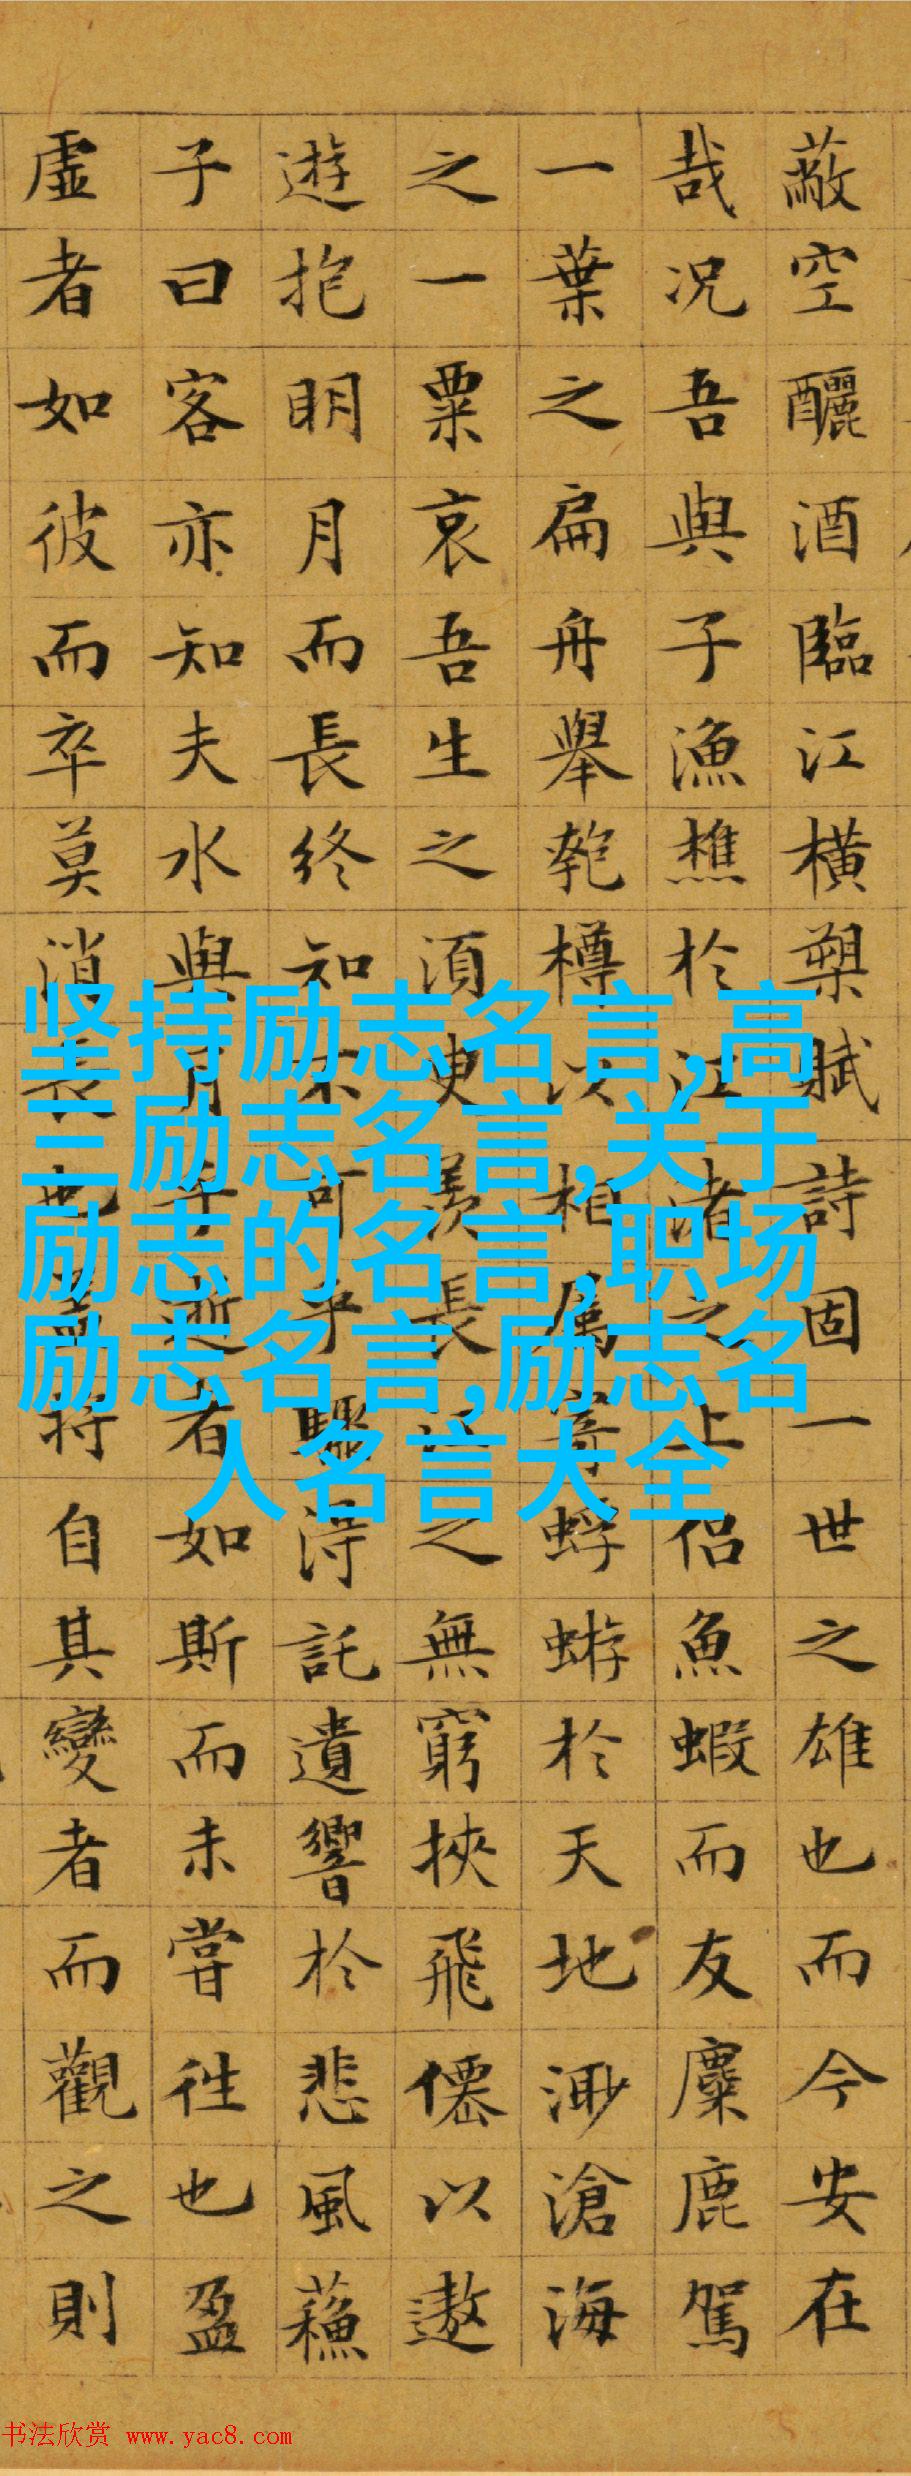 蔽空釃酒臨江橫槊賦詩固一世之雄也而今安在
哉况吾與子漁樵於江渚之上侶魚蝦而友麋鹿駕
一葉之扁舟舉匏樽以相属寄蜉蝣於天地渺滄海
之一粟哀吾生之須臾羨長江之無窮挾飛僊以遨
遊抱明月而長終知不可乎驟得託遺響於悲風蘓
子曰客亦知夫水與月乎逝者如斯而未嘗往也盈
虛者如彼而卒莫消長也盖将自其變者而觀之則
坚持励志名言,高
三励志名言,关于
励志的名言,职场
励志名言,励志名
人名言大全
书法欣赏 www.yac8.com